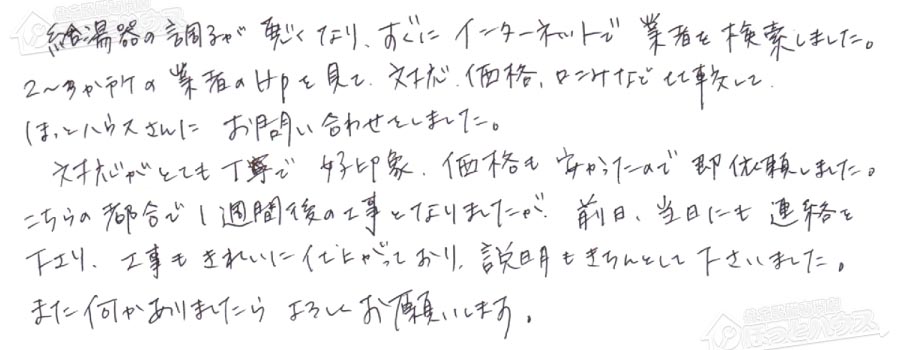 給湯器の調子が悪くなり、すぐにインターネットで業者を検索しました。
2〜3か所の業者のHpを見て、対応、価格、口コミなど比較して
ほっとハウスさんに お問い合わせをしました。
対応がとても丁寧で 好印象、価格も 安かったので 即依頼しました。
こちらの都合で1週間後の工事となりましたが、前日、当日にも 連絡を
下さり、工事もきれいに仕上がっており、説明もきちんとして下さいました。
また何かありましたら よろしくお願いします。
ほっとハウス
ほっとハウス